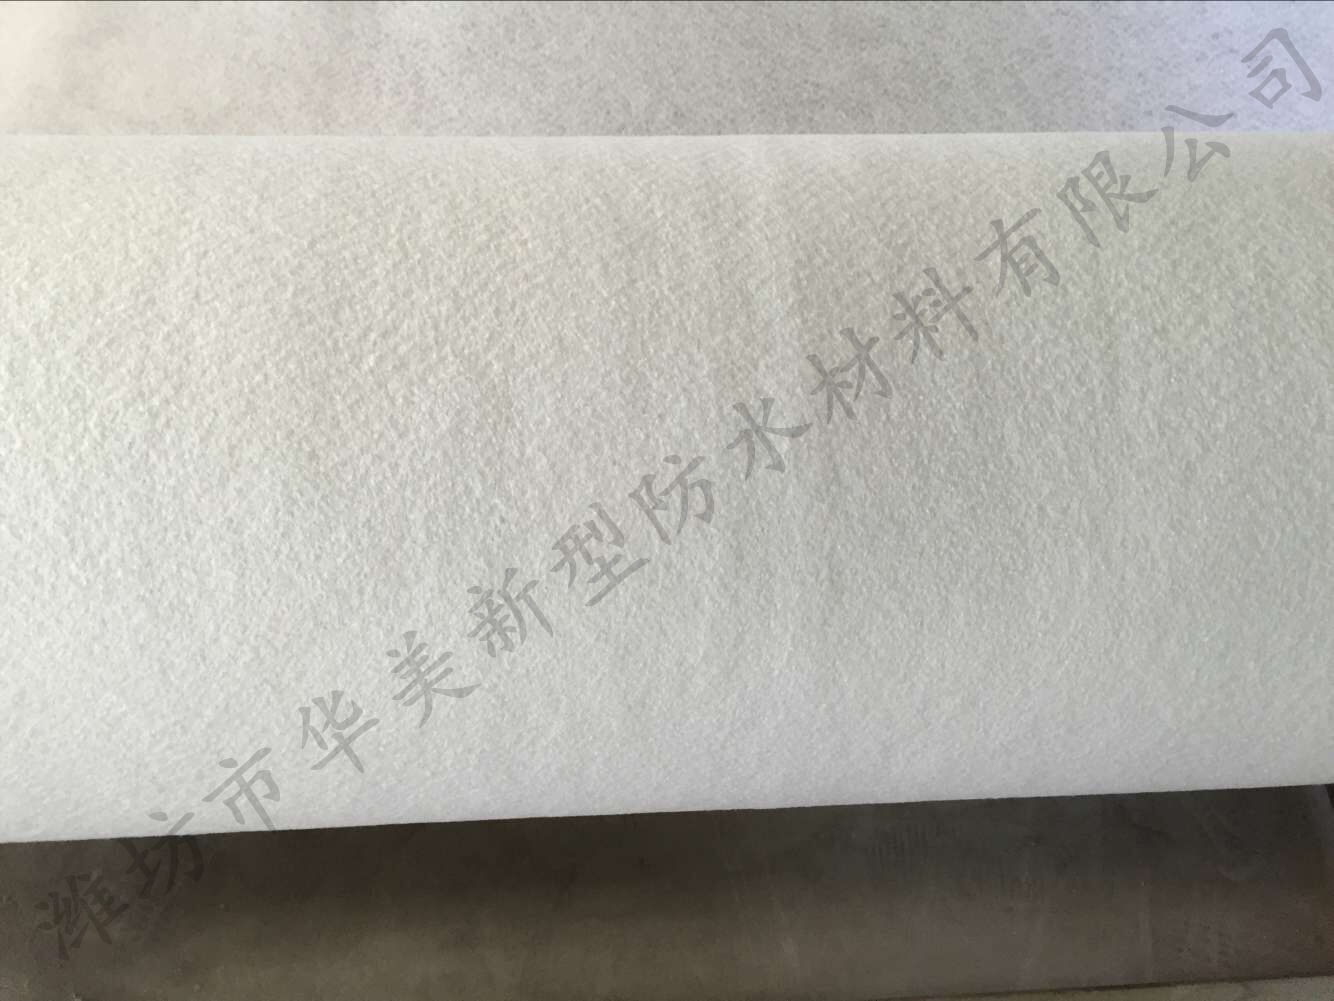 潍坊市华美新型防水材料有限公司